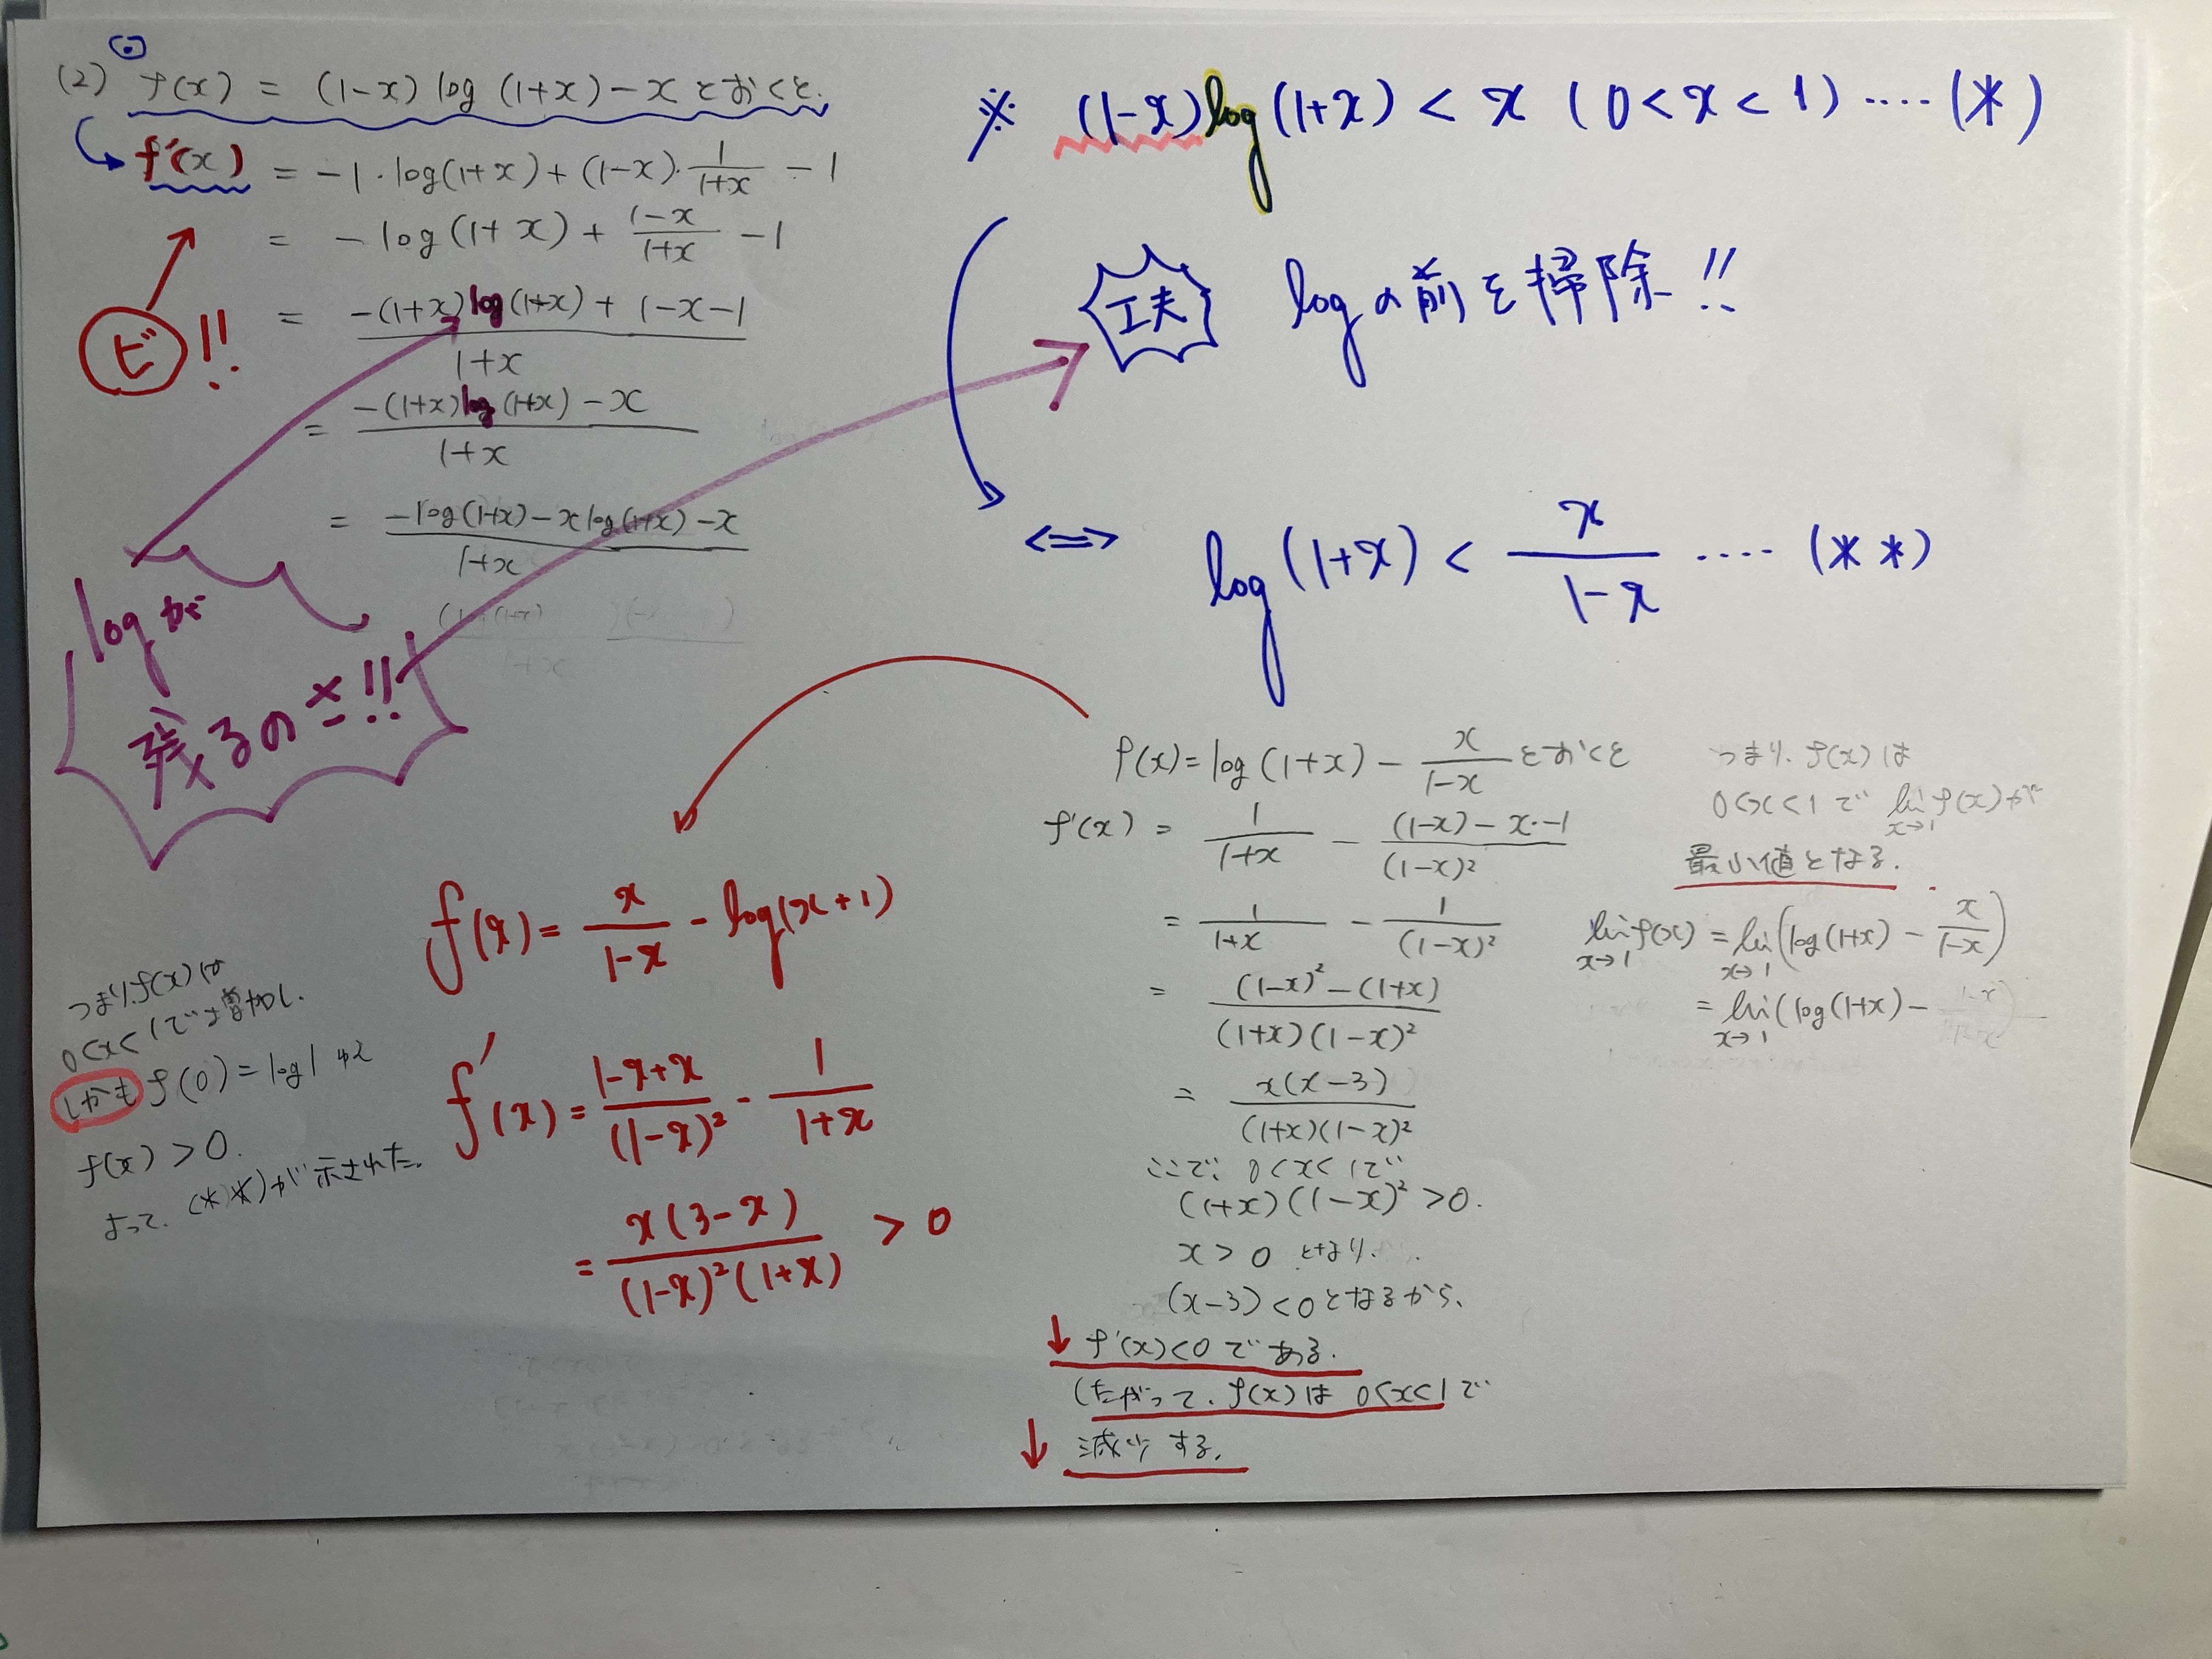 (2) f(x) = (1-x) log (1+x) - x とおくと.
f'(x) = -1・log(1+x) + (1-x)・1/(1+x) - 1
= - log (1+x) + (1-x)/(1+x) - 1
= (-(1+x) log (1+x) + 1-x-1)/(1+x)
= (-(1+x) log (1+x) - x)/(1+x)
= (-log(1+x) - x log(1+x) - x)/(1+x)
ビ!!
logが
残るのに!!
※ (1-x) log (1+x) < x (0 < x < 1) ‥‥ (*)
工夫 logの前を掃除!!
⟺ log (1+x) < x/(1-x) ‥‥ (**)
f(x) = log (1+x) - x/(1-x) とおくと
f'(x) = 1/(1+x) - ((1-x) - x・-1)/(1-x)²
= 1/(1+x) - 1/(1-x)²
= ((1-x)² - (1+x))/((1+x)(1-x)²)
= x(x-3)/((1+x)(1-x)²)
ここで、0<x<1で
(1+x)(1-x)² > 0.
x > 0 となり、
(x-3) < 0 となるから、
↓ f'(x)<0 である.
したがって、f(x)は 0<x<1で
↓ 減少する.
つまり、f(x)は
0<x<1で lim x→1 f(x)が
最小値となる.
lim x→1 f(x) = lim x→1 (log(1+x) - x/(1-x))
= lim x→1 (log(1+x) -
f(x) = x/(1-x) - log(x+1)
f'(x) = (1-x+x)/(1-x)² - 1/(1+x)
= x(3-x)/((1-x)²(1+x)) > 0
つまり、f(x)は
0<x<1で増加し.
しかも f(0) = log1 ゆえ
f(x) > 0.
よって、(**)が示された.